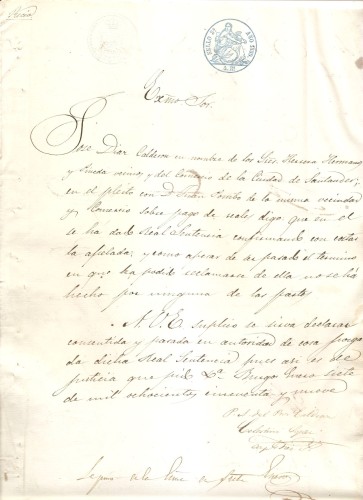 Exmo Sor.
Jose Diaz Calderon en nombre de los Sres. Herrera Hermanos
y Viuda vecinos y del Comercio de la Ciudad de Santander;
en el pleito con D. Juan Pombo de la misma vecindad
y Comercio sobre pago de reales digo, que en el
se ha dado Real Sentencia confirmando con costas
la apelada; y como apesar de ser pasado el termino
en que ha podido reclamarse de ella no se ha
hecho por ninguna de las partes
A. V. E. suplico se sirva declarar
consentida y pasada en autoridad de cosa juzga
da dicha Real Sentencia pues asi es de
justicia que pido Burgos Enero siete
de mil ochocientos cincuenta y nueve